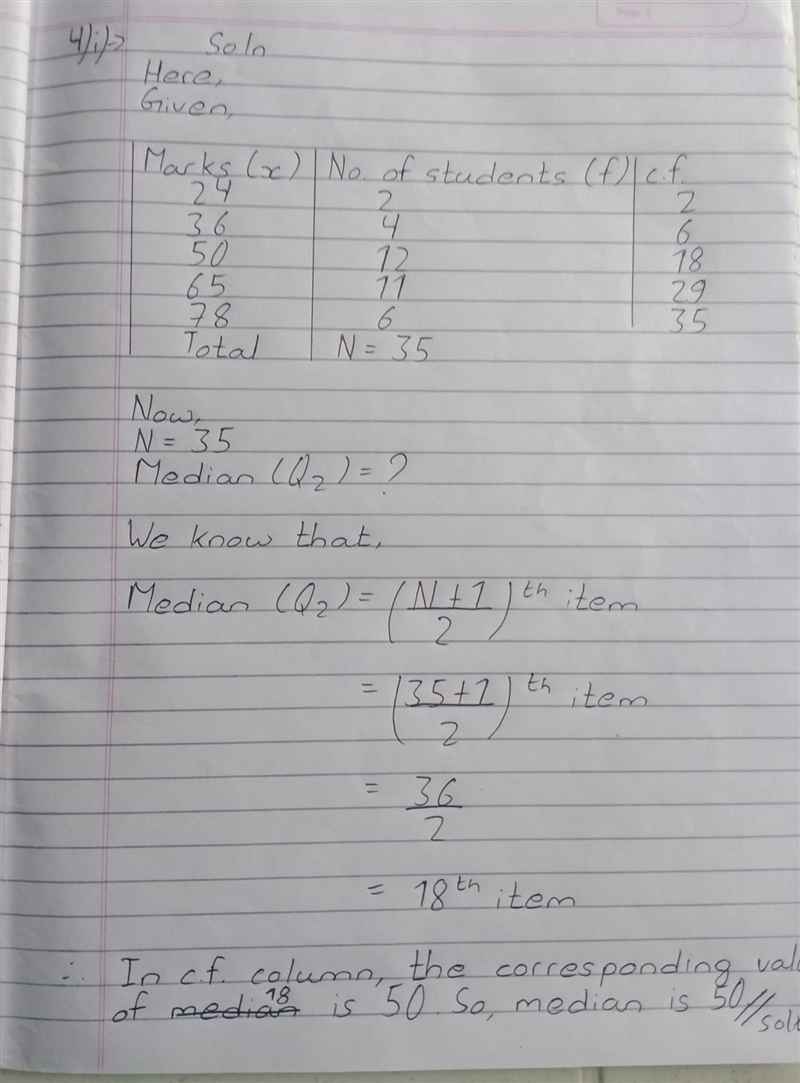 4)i)→ Soln
Here,
Given,
Marks (x) No. of students (f) c.f.
24 2 2
36 4 6
50 12 18
65 11 29
78 6 35
Total N = 35
Now,
N = 35
Median (Q₂) = ?
We know that,
Median (Q₂) = (N+1/2)ᵗʰ item
= (35+1/2)ᵗʰ item
= 36/2
= 18ᵗʰ item
∴ In c.f. column, the corresponding
of 18 is 50. So, median is 50//